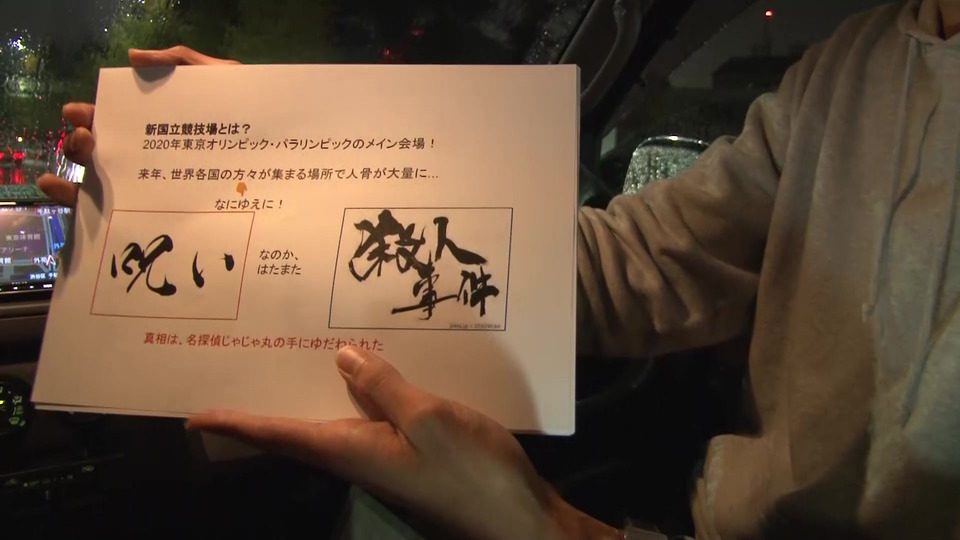 新国立競技場とは？
2020年東京オリンピック・パラリンピックのメイン会場！
来年、世界各国の方々が集まる場所で人骨が大量に…
なにゆえに！
呪い
なのか、
はたまた
殺人
事件
真相は、名探偵じゃじゃ丸の手にゆだねられた
東京体育館